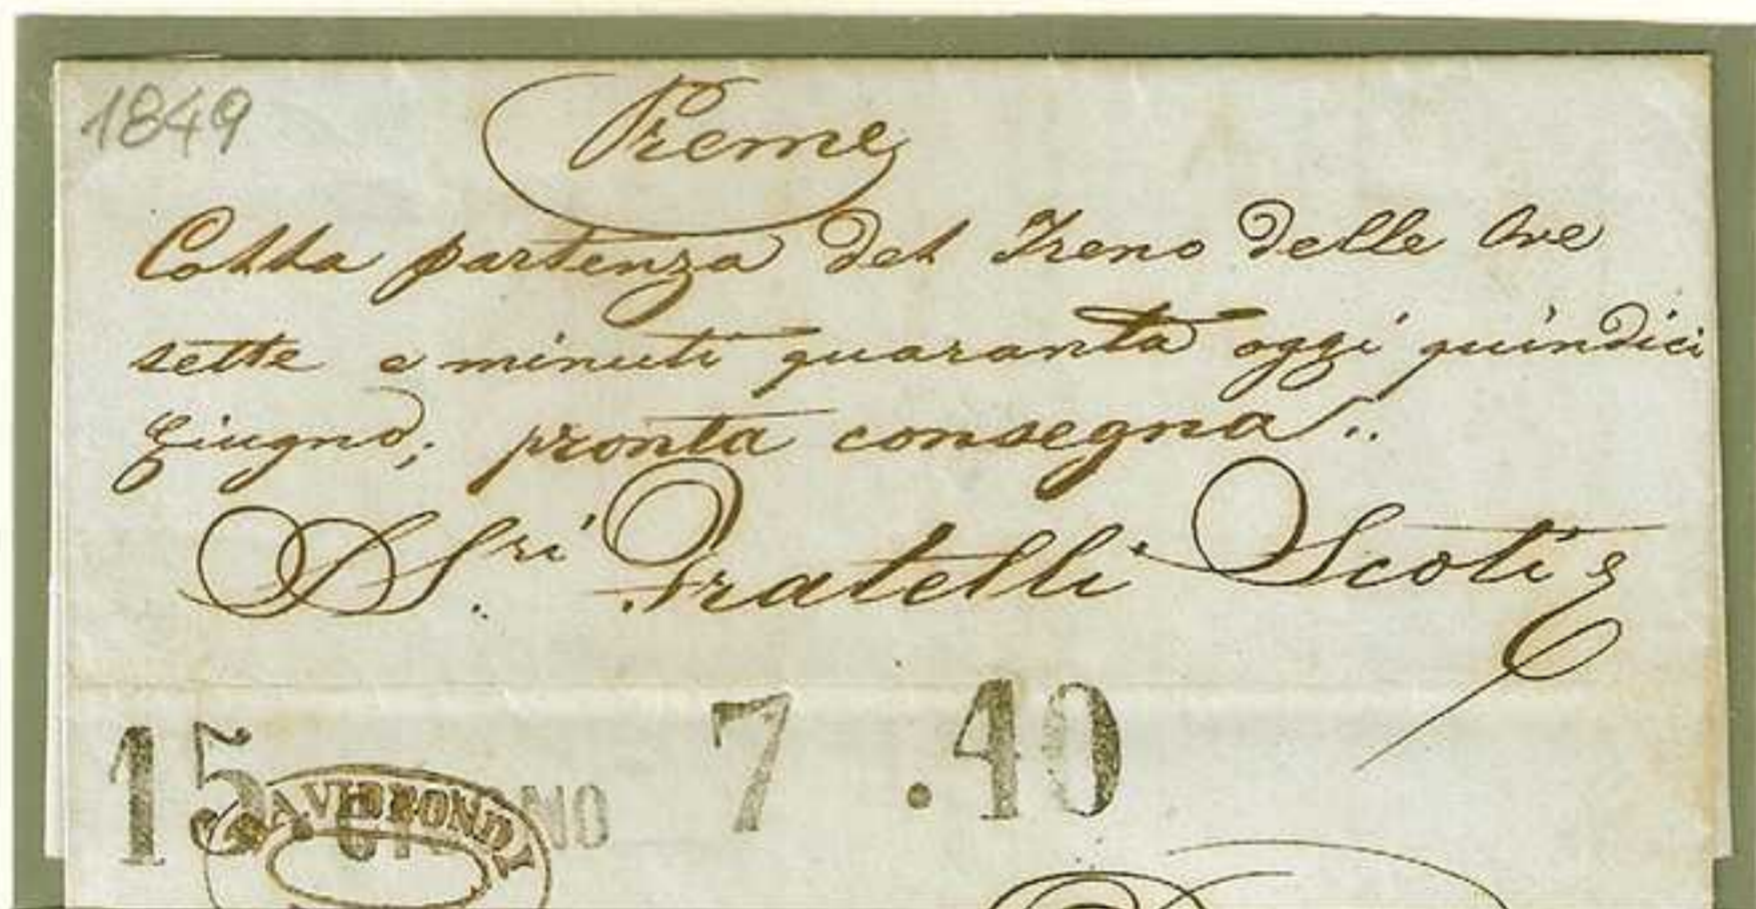 1849
Preme
Colla partenza del Treno delle Ore
sette e minuti quaranta oggi quindici
Giugno; pronta consegna
S.ri Fratelli Scoti
15 GIUGNO 7 .40
DAVID BONDI